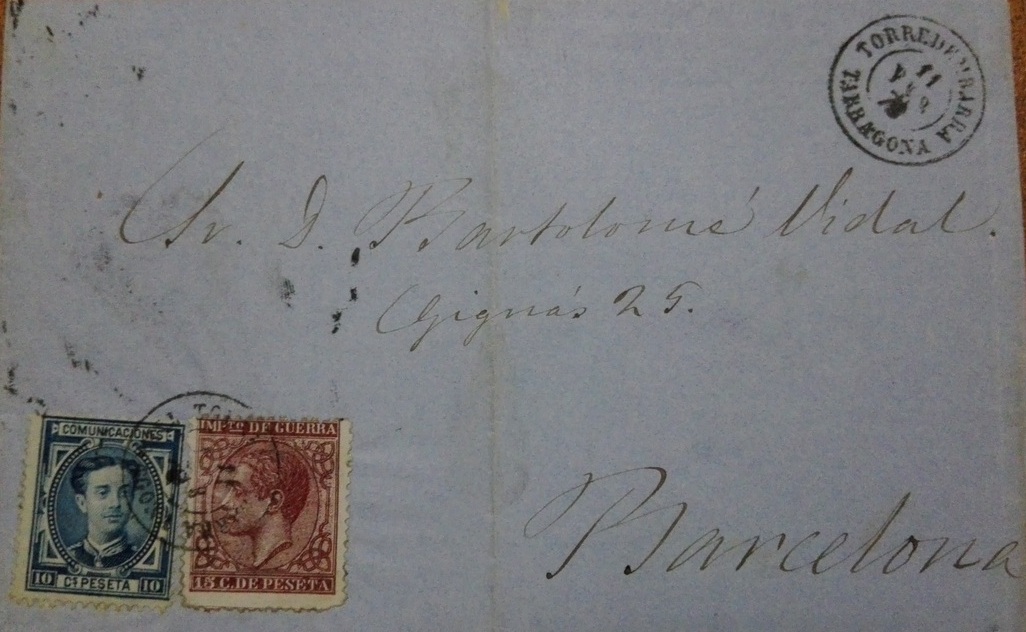 TORREDEMBARRA
11
TARRAGONA
Sr. D. Bartolomé Vidal.
Gignás 25.
Barcelona
COMUNICACIONES
10 Cs PESETA 10
IMPTO DE GUERRA
15 C. DE PESETA